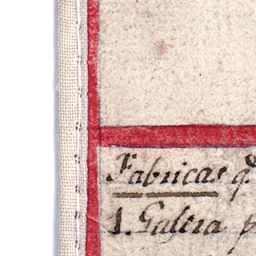 Fabricas q.
1. Galera p